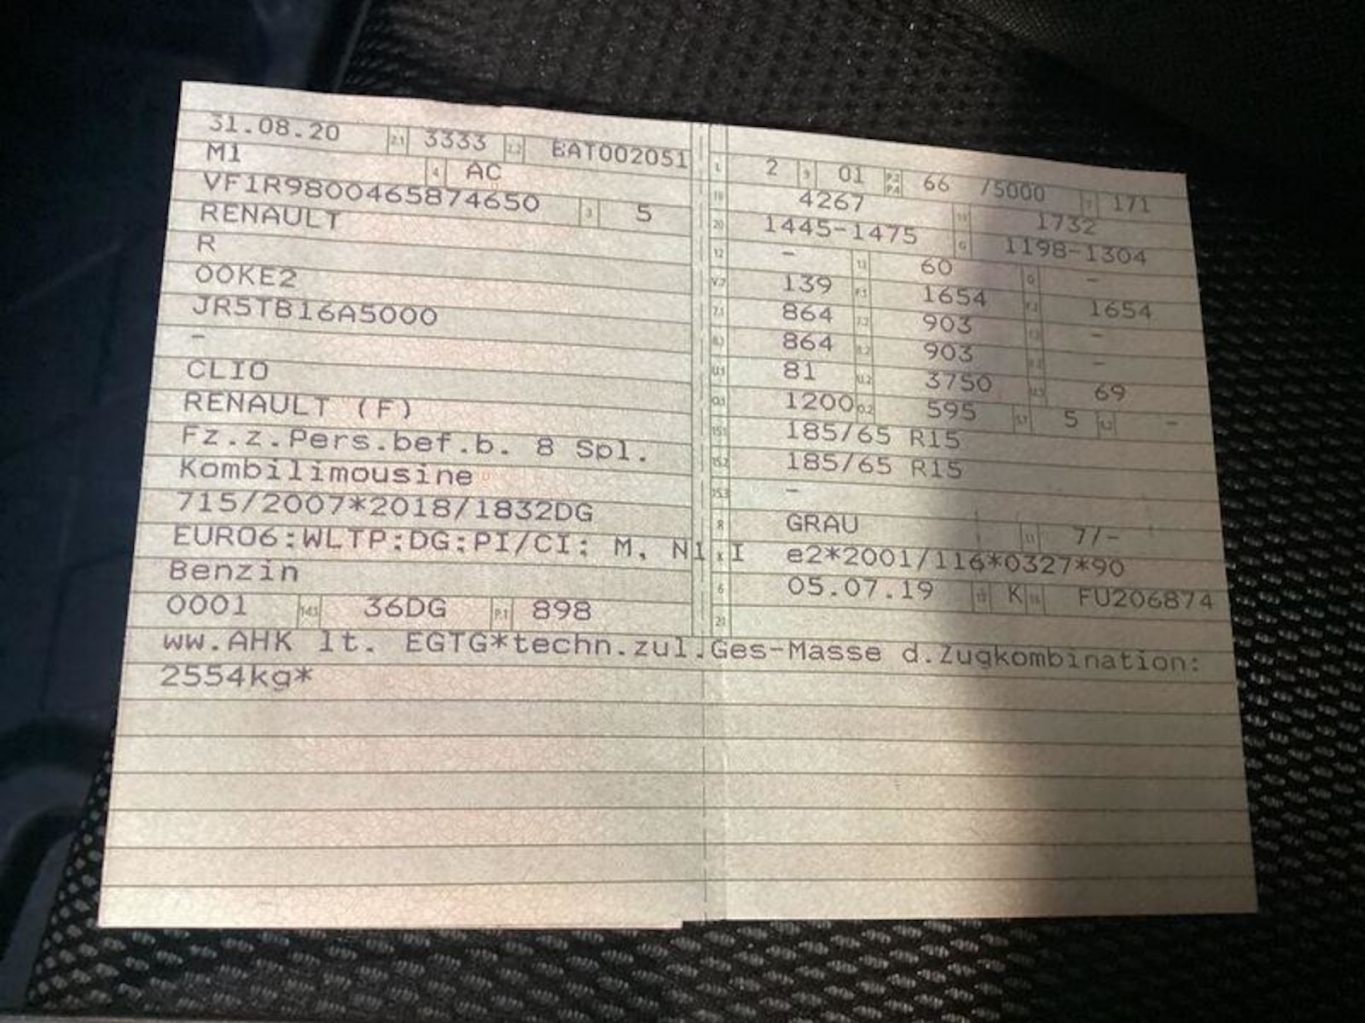 31.08.20 2.1 3333 2.2 BAT002051
M1 4 AC
VF1R9800465874650 3 5
RENAULT
R
OOKE2
JR5TB16A5000
-
CLIO
RENAULT (F)
Fz.z.Pers.bef.b. 8 Spl.
Kombilimousine
715/2007*2018/1832DG
EURO6;WLTP;DG;PI/CI; M, N1 I
Benzin
0001 14.1 36DG P.1 898
L 2 9 01 P.2 P.4 66 /5000 T 171
18 4267 19 1732
20 1445-1475 G 1198-1304
12 - 13 60 Q -
V.7 139 F.1 1654 F.2 1654
7.1 864 7.2 903 7.3 -
8.1 864 8.2 903 8.3 -
U.1 81 U.2 3750 U.3 69
O.1 1200 O.2 595 S.1 5 S.2 -
15.1 185/65 R15
15.2 185/65 R15
15.3 -
R GRAU 11 7/-
K e2*2001/116*0327*90
6 05.07.19 17 K 16 FU206874
21
ww.AHK lt. EGTG*techn.zul.Ges-Masse d.Zugkombination:
2554kg*